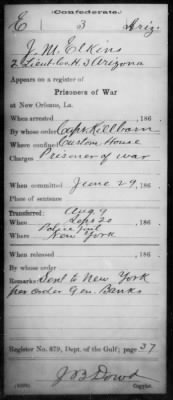 (Confederate.)
E 3 Ariz.
J. M. Elkins
2 Lieut Co. H. 3 Arizona
Appears on a register of
Prisoners of War
at New Orleans, La.
When arrested , 186 .
By whose order Capt Killborn
Where Custom House
Charges Prisoner of war
When committed June 29 , 186 .
Place of sentence
Transferred: Aug 9
When Sept 20 , 186 .
Where Police Jail
New York
When released , 186 .
By whose order
Remarks: Sent to New York
per order Gen. Banks
Register No. 879, Dept. of the Gulf; page 37
J B Dowd
Copyist.